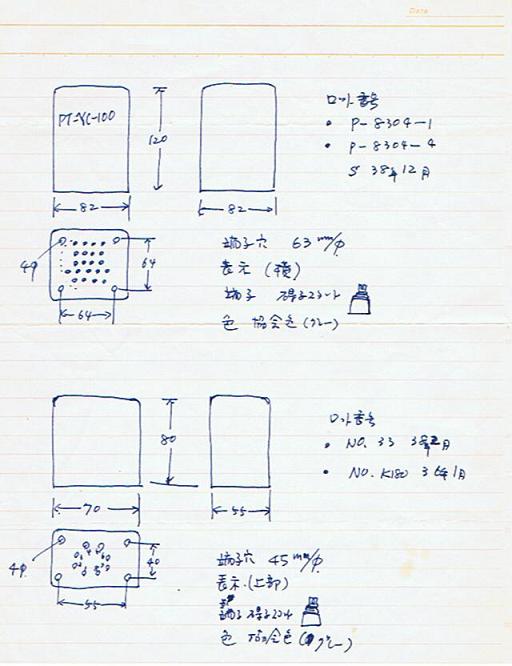 Date
PT-VC-100
120
82
82
ロット番号
・ P-8304-1
・ P-8304-4
S 38年12月
4φ
64
64
端子穴 63 mm/φ
表示 (横)
端子 碍子
色 協会色 (グレー)
80
70
55
ロット番号
・ NO. 33
・ NO. K180 36年1月
4φ
40
55
端子穴 45 mm/φ
表示 (上部)
端子 碍子
色 協会色 (グレー)